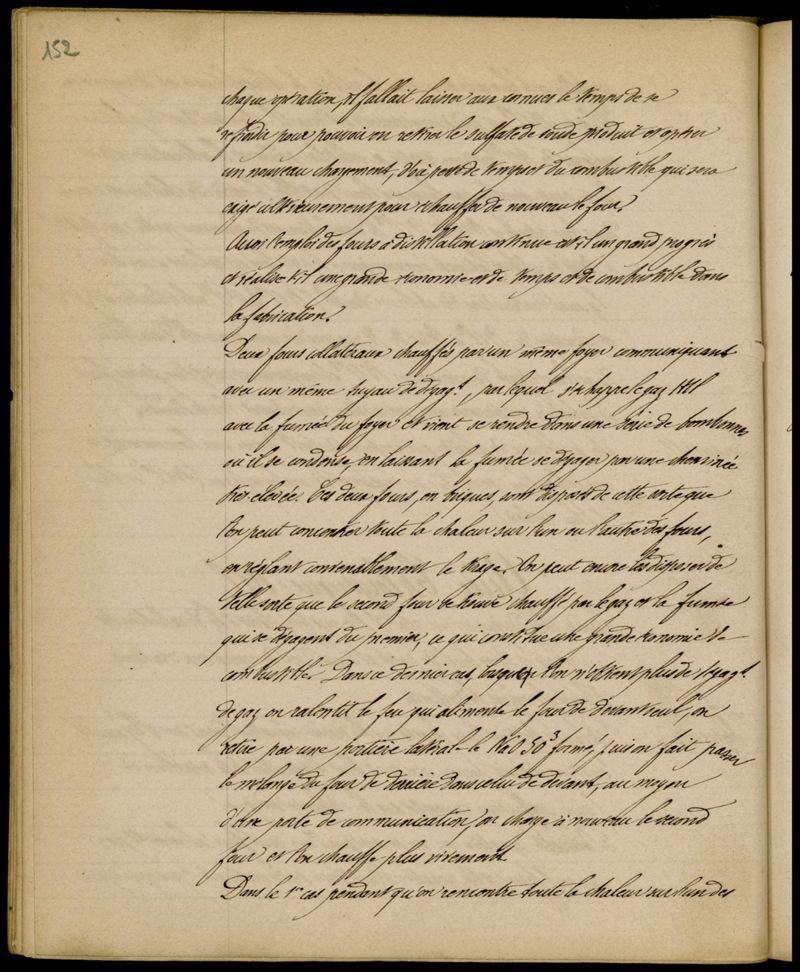 152
chaque opération, il fallait laisser aux cornues le temps de se
refroidir pour pouvoir en retirer le sulfate de soude produit et opérer
un nouveau chargement, d'où perte de temps et du combustible qui sera
exigé ultérieurement pour réchauffer de nouveau le four.
Aussi l'emploi des fours à distillation continue est-il un grand progrès
et réalise-t-il une grande économie et de temps et de combustible dans
la fabrication.
Deux fours collatéraux chauffés par un même foyer communiquant
avec un même tuyau de dégagt, par lequel s'échappe le gaz HCl
avec la fumée du foyer et vient se rendre dans une série de bombonnes
où il se condense, en laissant la fumée se dégager par une cheminée
très élevée. Ces deux fours, en briques, sont disposés de cette sorte que
l'on peut concentrer toute la chaleur sur l'un ou l'autre des fours,
en réglant convenablement le tirage. On peut encore les disposer de
telle sorte que le second four se trouve chauffé par le gaz et la fumée
qui se dégagent du premier, ce qui constitue une grande économie de
combustible. Dans ce dernier cas, lorsque l'on n'obtient plus de dégagt
de gaz on ralentit le feu qui alimente le four de devant seul, on
retire par une portière latérale le NaO SO3 formé, puis on fait passer
le mélange du four de derrière dans celui de devant, au moyen
d'une porte de communication, on charge à nouveau le second
four et l'on chauffe plus vivement.
Dans le 1er cas pendant qu'on concentre toute la chaleur sur l'un des